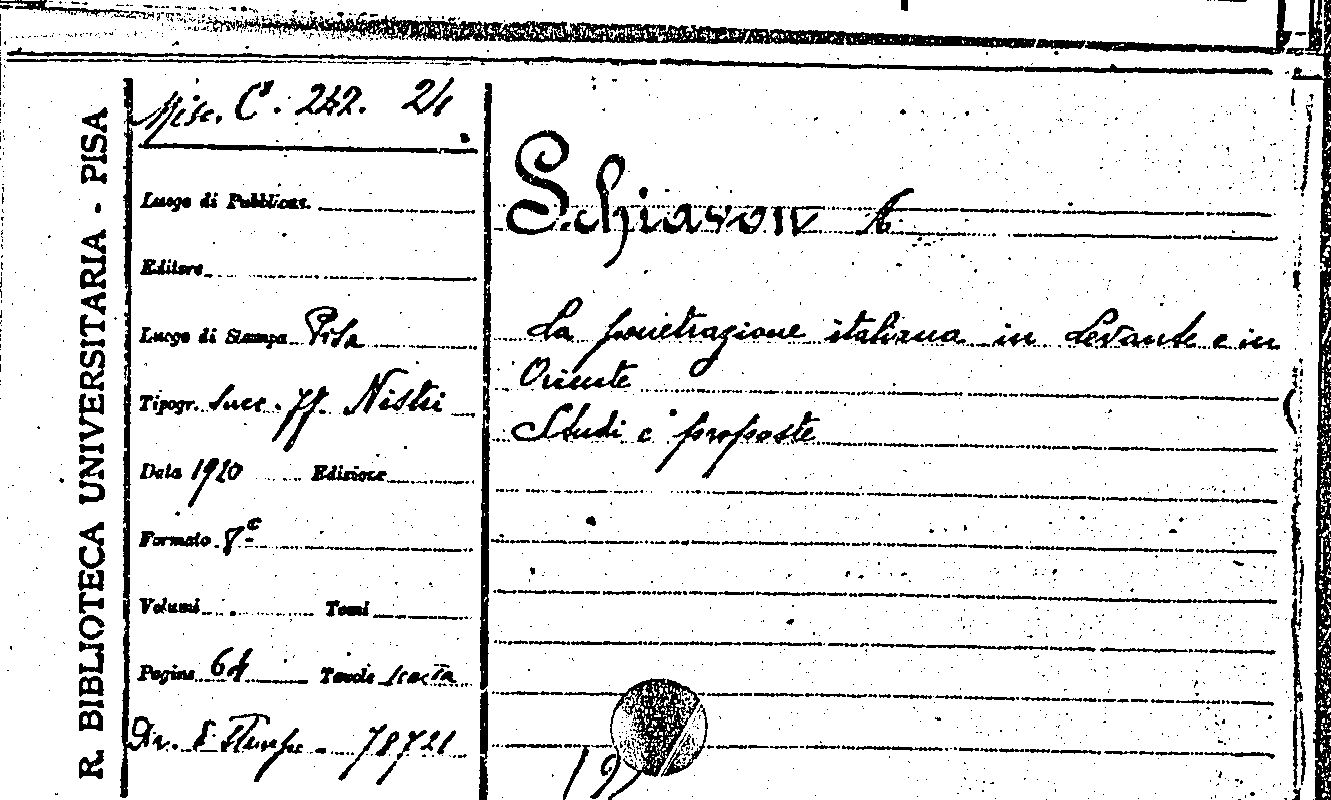 R. BIBLIOTECA UNIVERSITARIA - PISA
Misc. C. 242. 24
Luogo di Pubblicaz.
Editore
Luogo di Stampa Pisa
Tipogr. Succ. ff. Nistri
Data 1910 Edizione
Formato 8º
Volumi Tomi
Pagine 64 Tavole 1 carta
Dir. Stampa - 78721
Schiavon A
La penetrazione italiana in Levante e in
Oriente
Studi e proposte